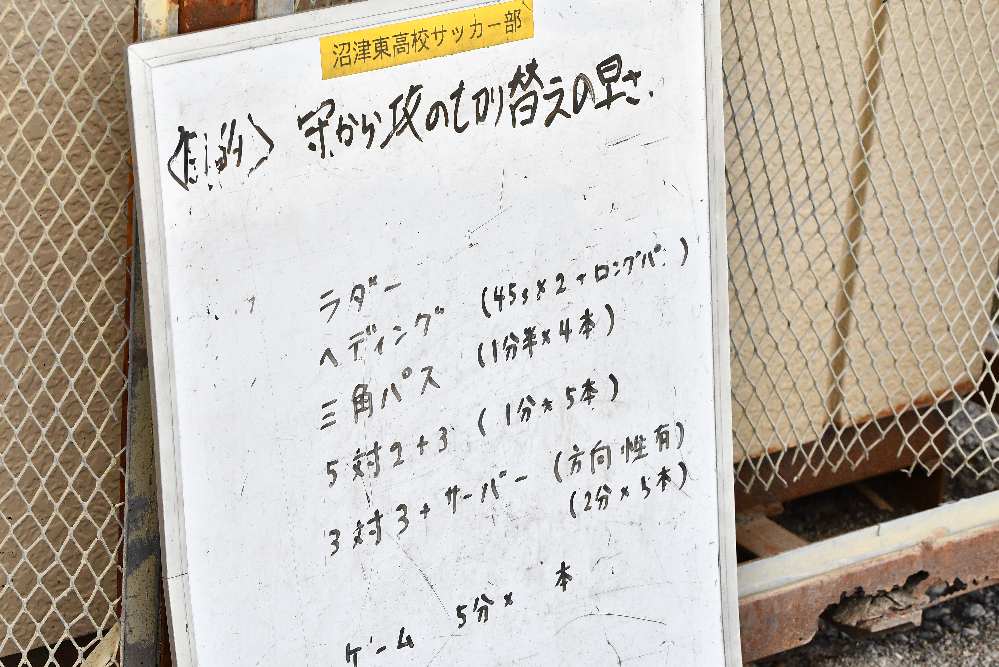 沼津東高校サッカー部
〈目的〉 守から攻の切り替えの早さ
ラダー
ヘディング (45s×2+ロングパス)
三角パス (1分半×4本)
5対2+3 (1分×5本)
3対3+サーバー (方向性有)
(2分×5本)
ゲーム 5分× 本